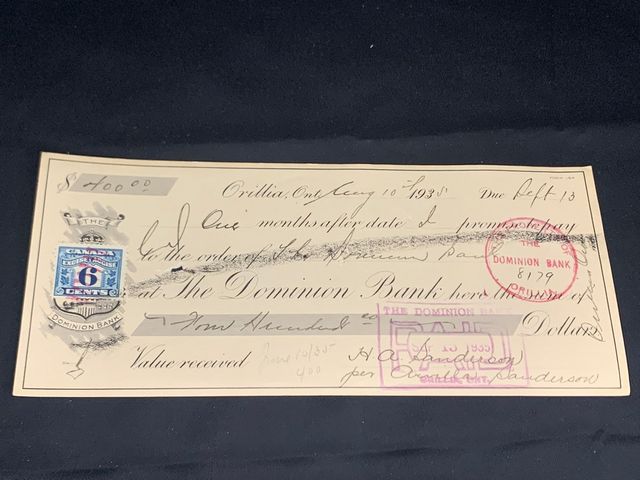 $400.00
Orillia, Ont. Aug 10th 1935 Due Sept 13
One months after date I promise to pay
To the order of The Dominion Bank
at The Dominion Bank here the sum of
Four Hundred 00 Dollars
Value received
June 10/35
400
H. A. Sanderson
per Sanderson
THE
DOMINION BANK
CANADA
6
CENTS
THE
DOMINION BANK
8179
ORILLIA
THE DOMINION BANK
PAID
SEP 13 1935
ORILLIA, ONT.